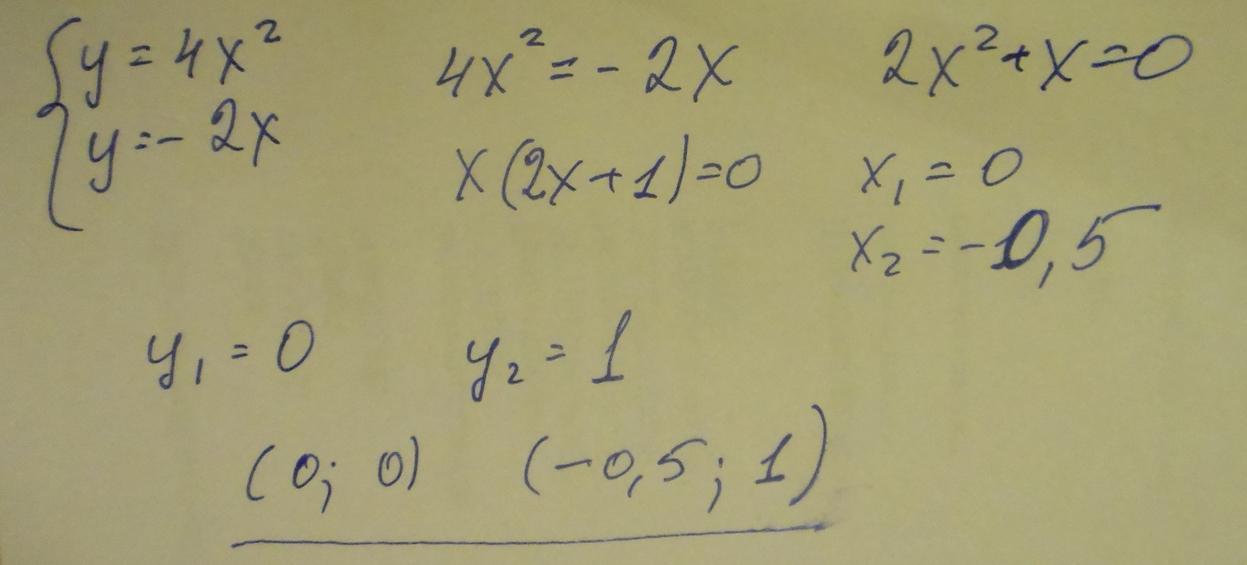 { y = 4x² 4x² = - 2x 2x² + x = 0
y = - 2x x(2x + 1) = 0 x₁ = 0
x₂ = - 0,5
y₁ = 0 y₂ = 1
(0; 0) (-0,5; 1)